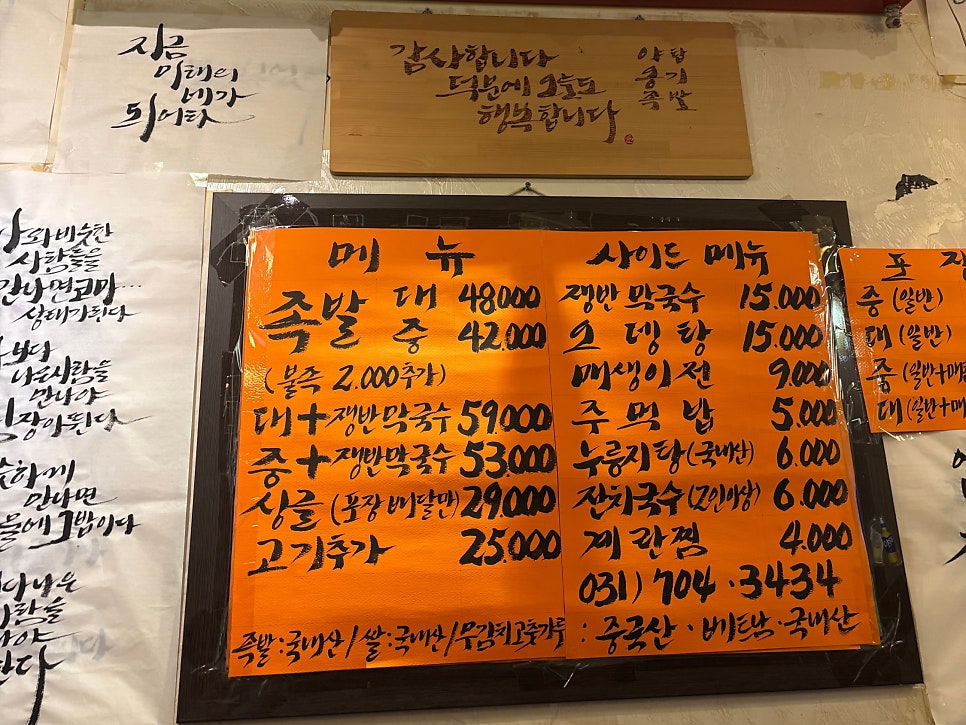 지금
이태의
네가
되어라
감사합니다
덕분에 오늘도
행복합니다
야탑
옹기
족발
와 비슷한
사람들을
만나면 코마...
상태가 된다
나은 사람을
만나야
성장이 된다
만나면
그밥이다
다 나은
사람을
메뉴
족발 대 48.000
중 42.000
(불족 2.000 추가)
대+쟁반막국수 59.000
중+쟁반막국수 53.000
싱글 (포장 배달만) 29.000
고기추가 25.000
사이드 메뉴
쟁반막국수 15.000
오뎅탕 15.000
매생이전 9.000
주먹밥 5.000
누룽지탕(국내산) 6.000
잔치국수(2인이상) 6.000
계란찜 4.000
031) 704.3434
족발:국내산/쌀:국내산/무김치고춧가루: 중국산·베트남·국내산
포장
중 (일반)
대 (일반)
중 (일반+매
대 (일반+매